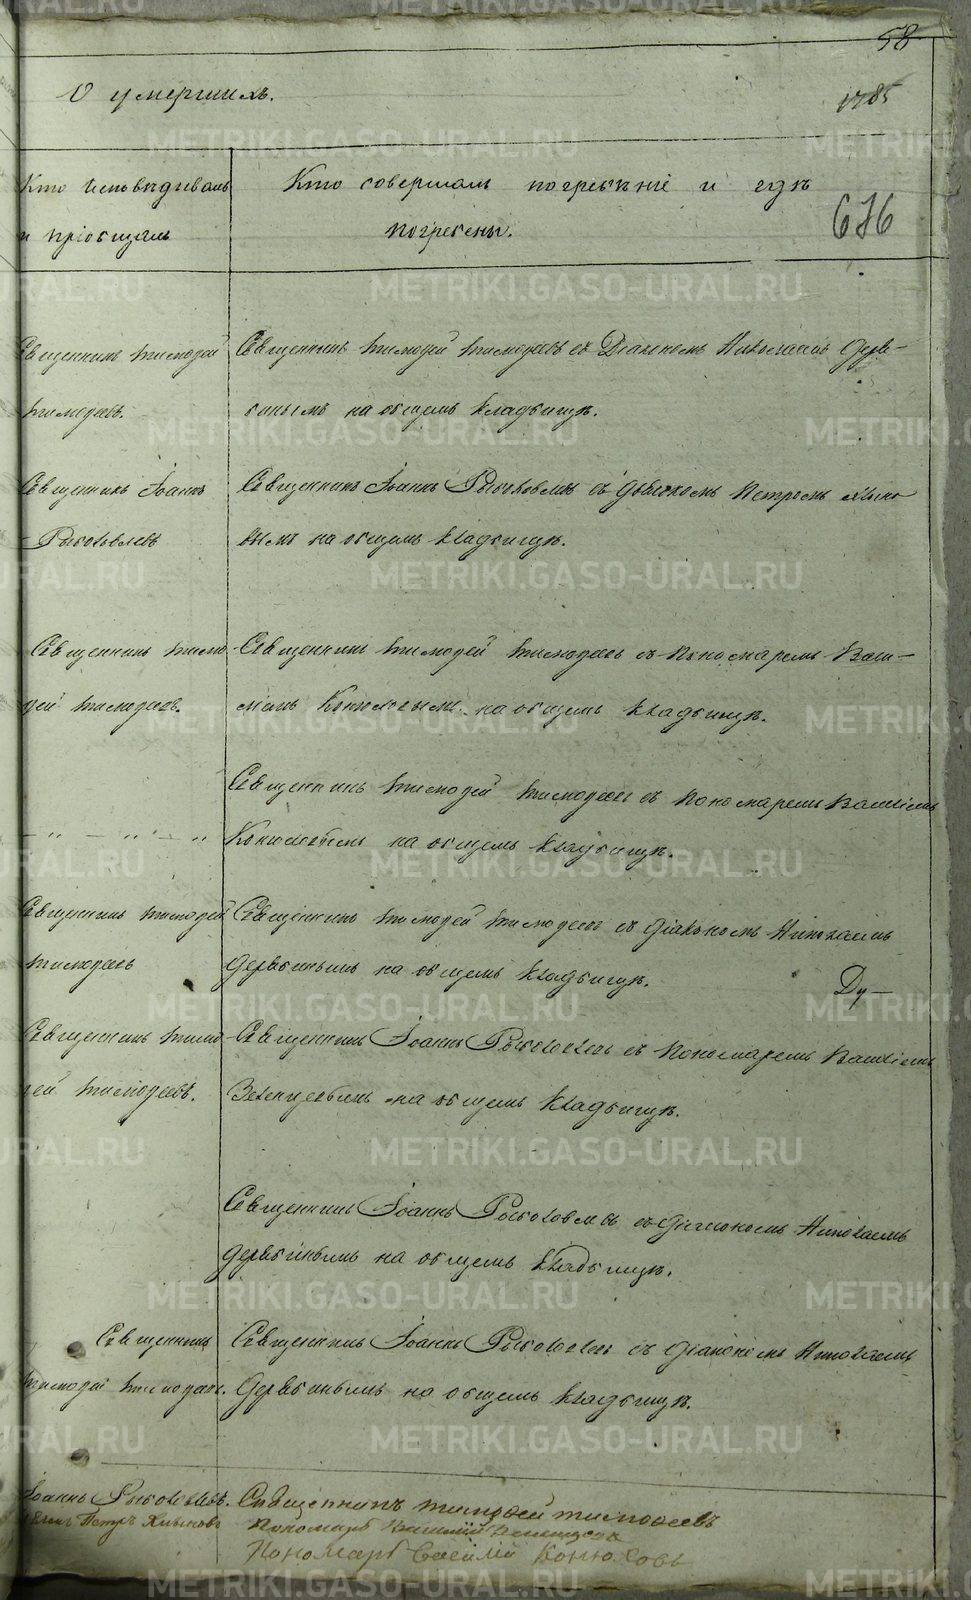 58
О умершихъ.
1785
Кто исповѣдывалъ
и пріобщалъ
Кто совершалъ погребѣніе и гдѣ
погребены.
676
Священникъ Тимофей
Тимофеевъ.
Священникъ Тимофей Тимофеевъ съ Діакономъ Николаемъ Деря-
бинымъ на общемъ кладбищѣ.
Священникъ Іоаннъ
Рыболовлевъ
Священникъ Іоаннъ Рыболовлевъ съ дьячкомъ Петромъ Хлыно
вымъ на общемъ кладбищѣ.
Священникъ Тимо
фей Тимофеевъ.
Священникъ Тимофей Тимофеевъ съ пономаремъ Васи-
лiемъ Конюховымъ на общемъ кладбищѣ.
— „ — „ — „
Священникъ Тимофей Тимофеевъ съ пономаремъ Василіемъ
Конюховымъ на общемъ кладбищѣ.
Священникъ Тимофей
Тимофеевъ
Священникъ Тимофей Тимофеевъ съ діакономъ Николаемъ
Дерябинымъ на общемъ кладбищѣ.
Ду—
Священникъ Тимо
фей Тимофеевъ.
Священникъ Іоаннъ Рыболовлевъ съ пономаремъ Василіемъ
на общемъ кладбищѣ.
Священникъ Іоаннъ Рыболовлевъ съ діакономъ Николаемъ
Дерябинымъ на общемъ кладбищѣ.
Священникъ
Тимофей Тимофеевъ.
Священникъ Іоаннъ Рыболовлевъ съ діакономъ Николаемъ
Дерябинымъ на общемъ кладбищѣ.
Іоаннъ Рыболовлевъ.
Петръ Хлыновъ
Священникъ Тимофей Тимофеевъ
Пономарь Василій
Пономарь Василій Конюховъ
METRIKI.GASO-URAL.RU